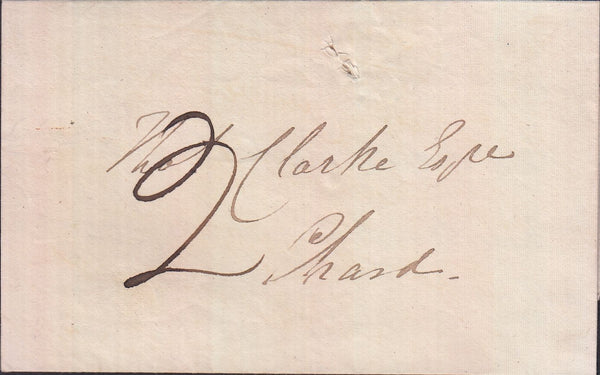 Thos Clarke Esqre
2
Chard